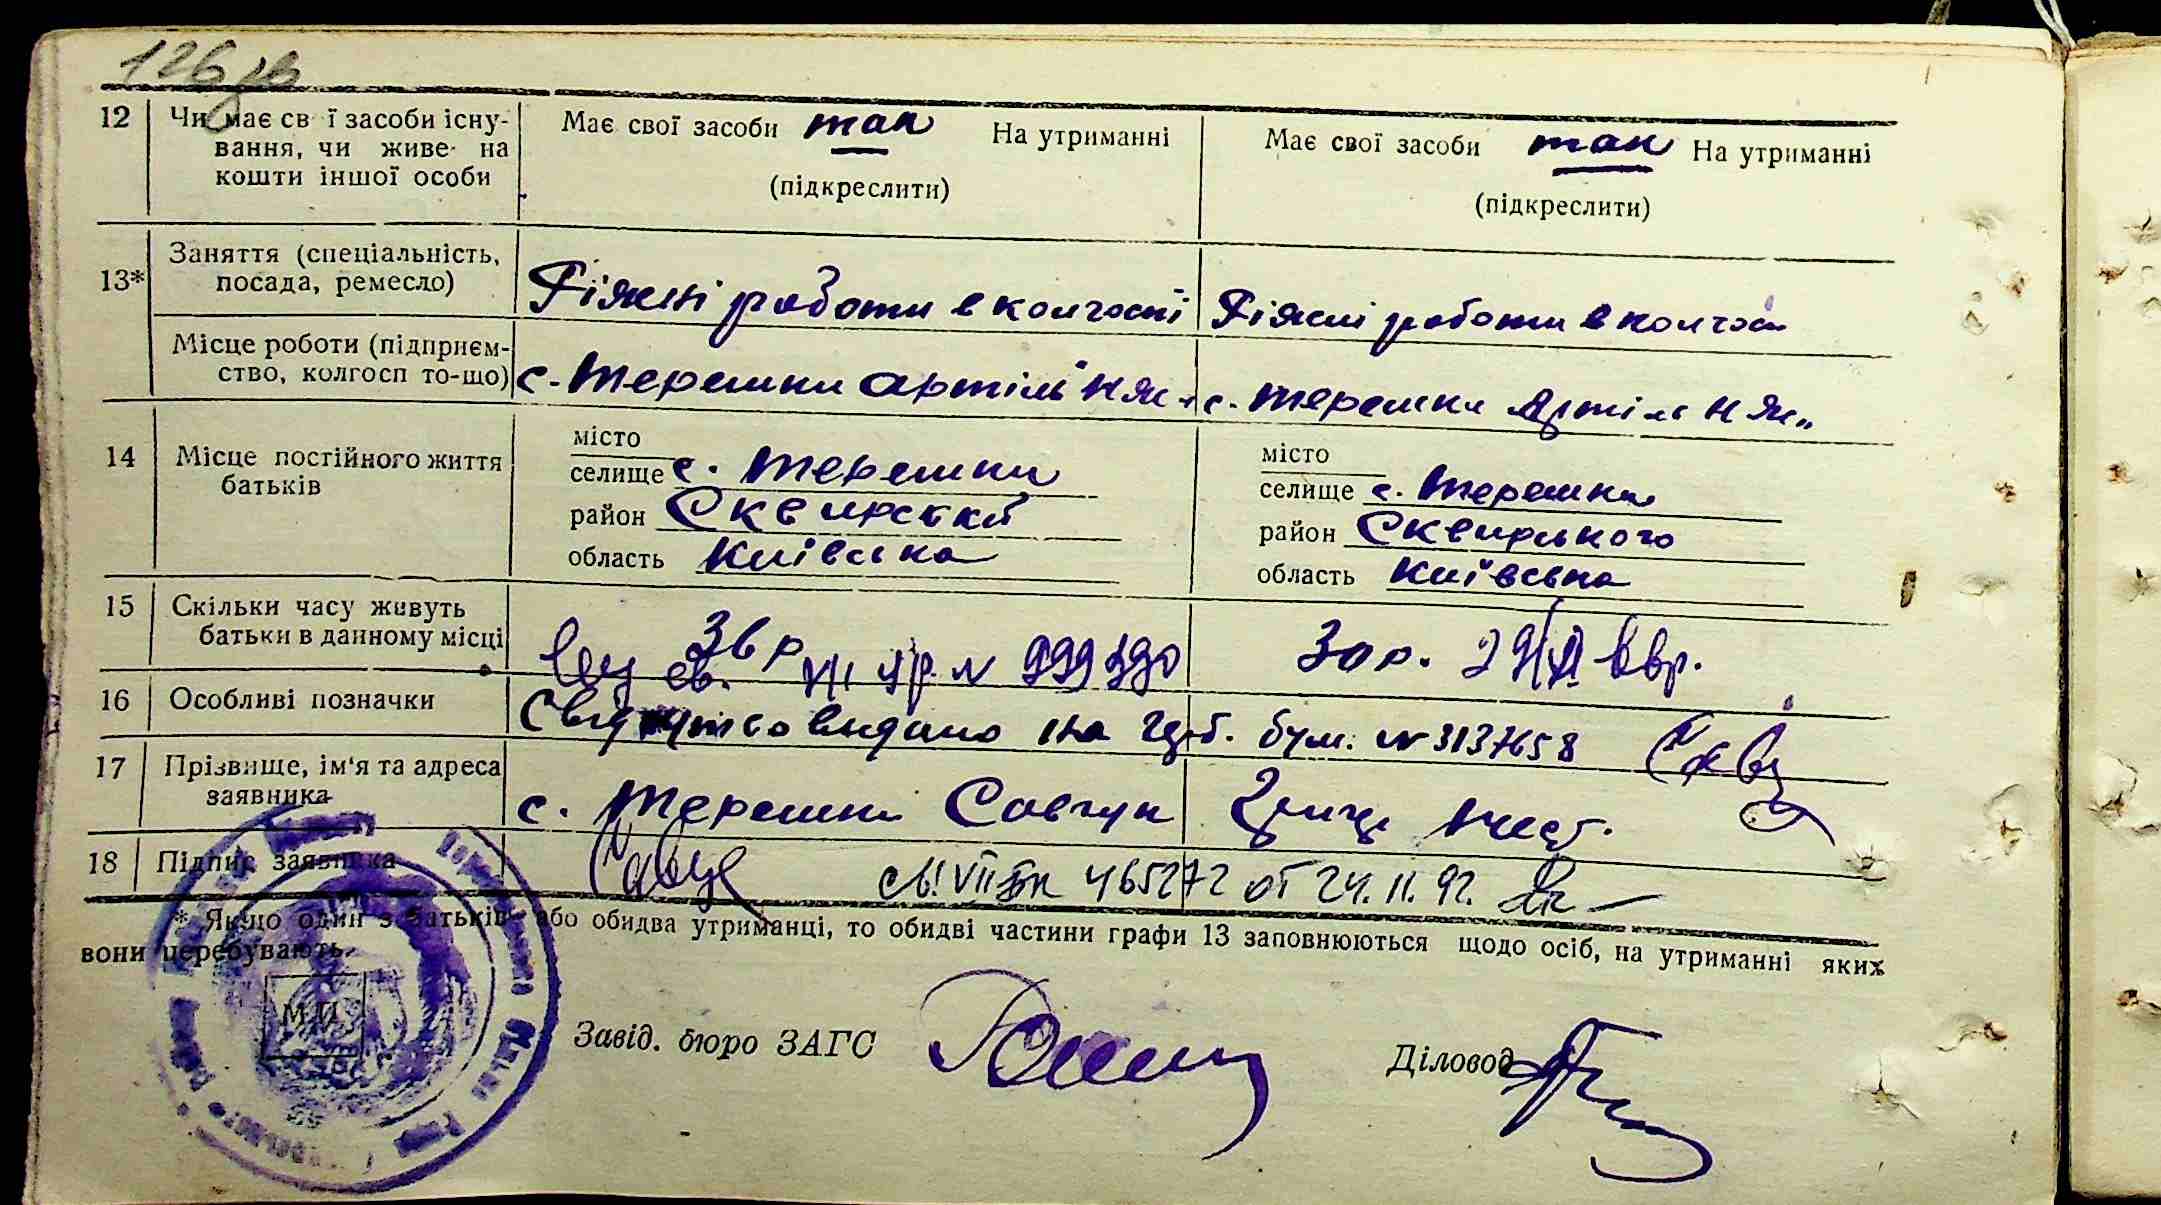 126 зв
12 Чи має св ї засоби існу- Має свої засоби так На утриманні Має свої засоби так На утриманні
вання, чи живе на
кошти іншої особи (підкреслити) (підкреслити)
13* Заняття (спеціальність,
посада, ремесло) Ріжні роботи в колгоспі Ріжні роботи в колгосп
Місце роботи (підприєм-
ство, колгосп то-що) с. Терешки артіль с. Терешки Артіль
14 Місце постійного життя місто місто
батьків селище с. Терешки селище с. Терешки
район Сквирский район Сквирського
область Київська область Київська
15 Скільки часу живуть
батьки в данному місці 36 р 30 р.
св. VII № 999390
16 Особливі позначки Свідитство видано на бум. № 3137658
17 Прізвище, ім'я та адреса
заявника с. Терешки Савчук
18 Підпис заявника 465272 от 24.11.92.
* Якщо один з батьків або обидва утриманці, то обидві частини графи 13 заповнюються щодо осіб, на утриманні яких
вони перебувають.
М.П.
Завід. бюро ЗАГС Діловод